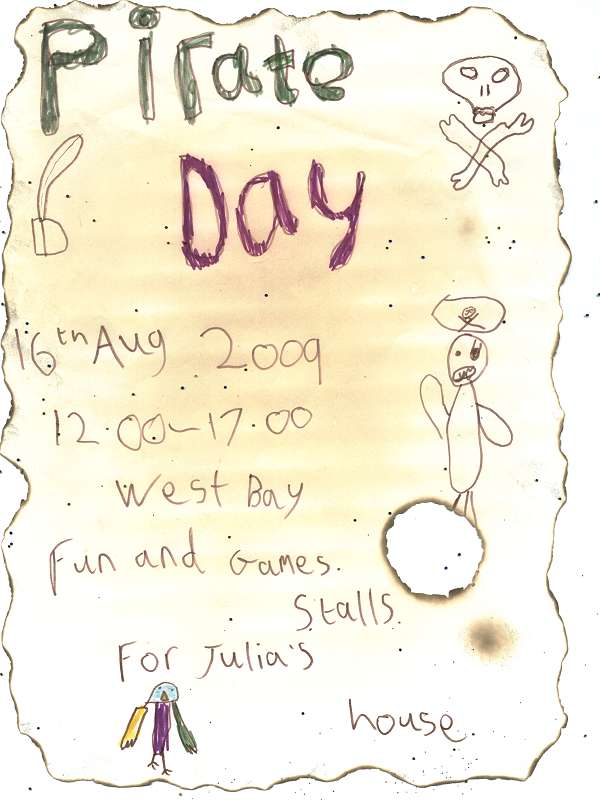 Pirate
Day
16th Aug 2009
12.00-17.00
West Bay
Fun and Games.
Stalls.
For Julia's
house